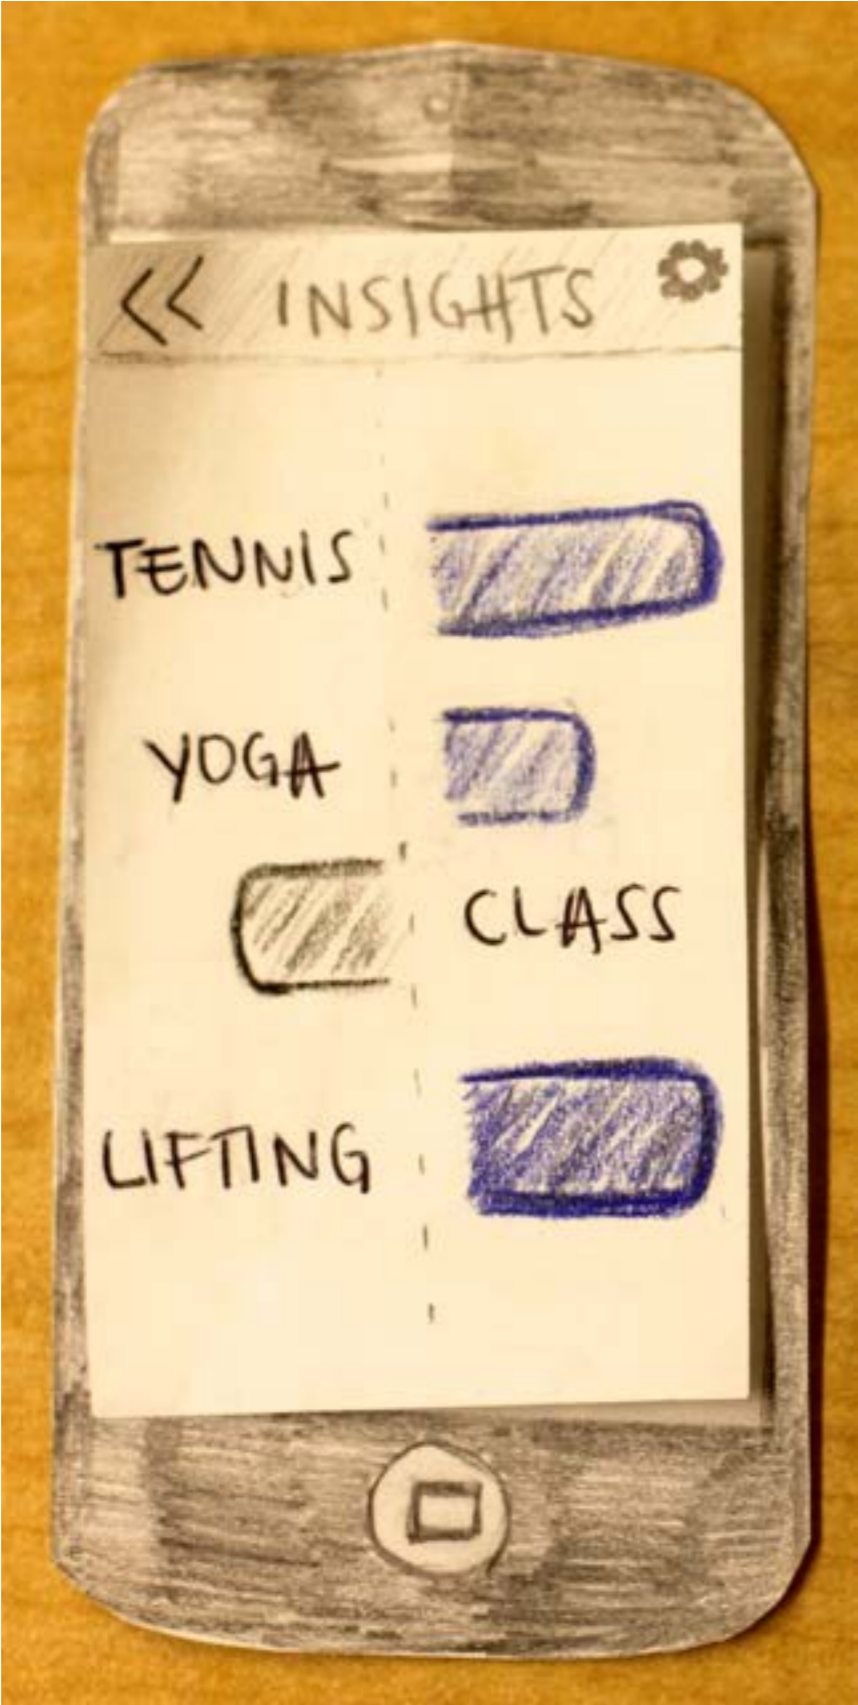 << INSIGHTS
TENNIS
YOGA
CLASS
LIFTING